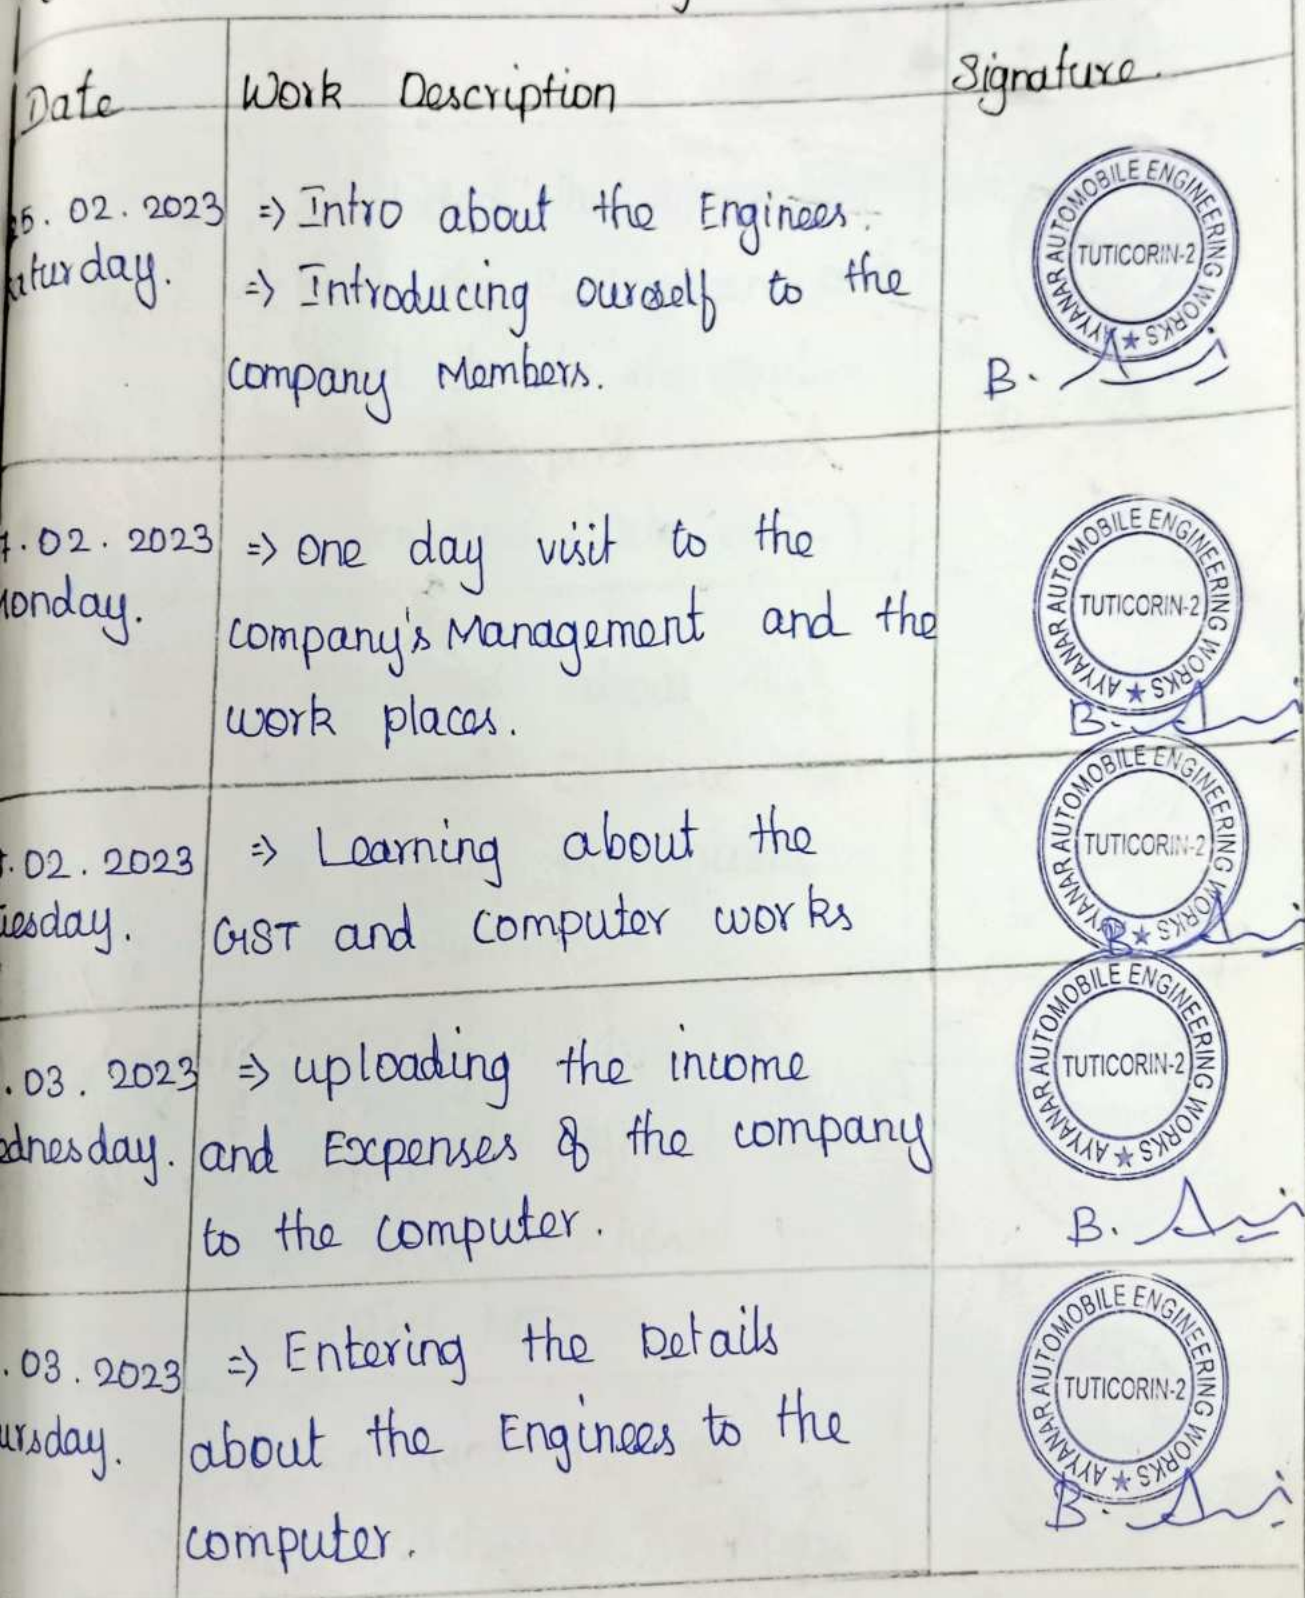 Date Work Description Signature.
25.02.2023 => Intro about the Enginees.
aturday. => Introducing ourself to the
company Members.
AYYANAR AUTOMOBILE ENGINEERING WORKS ★
TUTICORIN-2
B.
7.02.2023 => one day visit to the
onday. company's Management and the
work places.
AYYANAR AUTOMOBILE ENGINEERING WORKS ★
TUTICORIN-2
B.
.02.2023 => Learning about the
uesday. GST and computer works
AYYANAR AUTOMOBILE ENGINEERING WORKS ★
TUTICORIN-2
B.
.03.2023 => uploading the income
ednesday. and Expenses of the company
to the computer.
AYYANAR AUTOMOBILE ENGINEERING WORKS ★
TUTICORIN-2
B.
.03.2023 => Entering the Details
ursday. about the Enginees to the
computer.
AYYANAR AUTOMOBILE ENGINEERING WORKS ★
TUTICORIN-2
B.